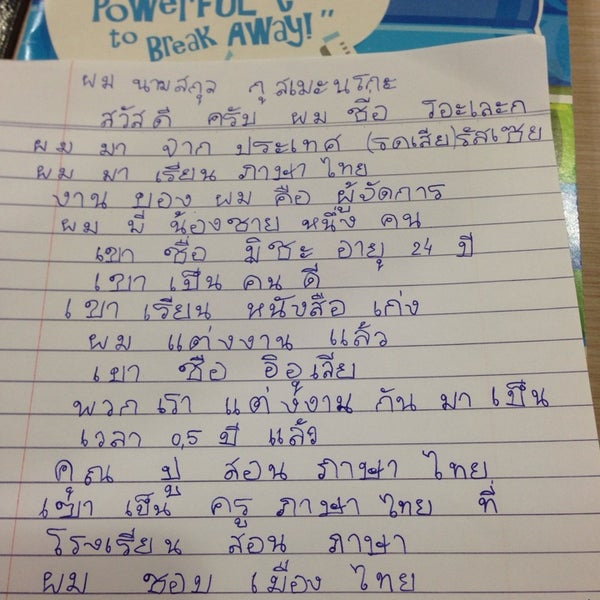 POWERFUL
to BREAK AWAY!"
ผม นามสกุล กูสเมะนโกะ
สวัสดี ครับ ผม ชื่อ รอะเละก
ผม มา จาก ประเทศ (รดเสีย)รัสเซีย
ผม มา เรียน ภาษา ไทย
งาน ของ ผม คือ ผู้จัดการ
ผม มี น้องชาย หนึ่ง คน
เขา ชื่อ มิชะ อายุ 24 ปี
เขา เป็น คน ดี
เขา เรียน หนังสือ เก่ง
ผม แต่งงาน แล้ว
เขา ชื่อ อิอูเลีย
พวก เรา แต่งงาน กัน มา เป็น
เวลา 0,5 ปี แล้ว
คุณ ปู สอน ภาษา ไทย
เขา เป็น ครู ภาษา ไทย ที่
โรงเรียน สอน ภาษา
ผม ชอบ เมือง ไทย